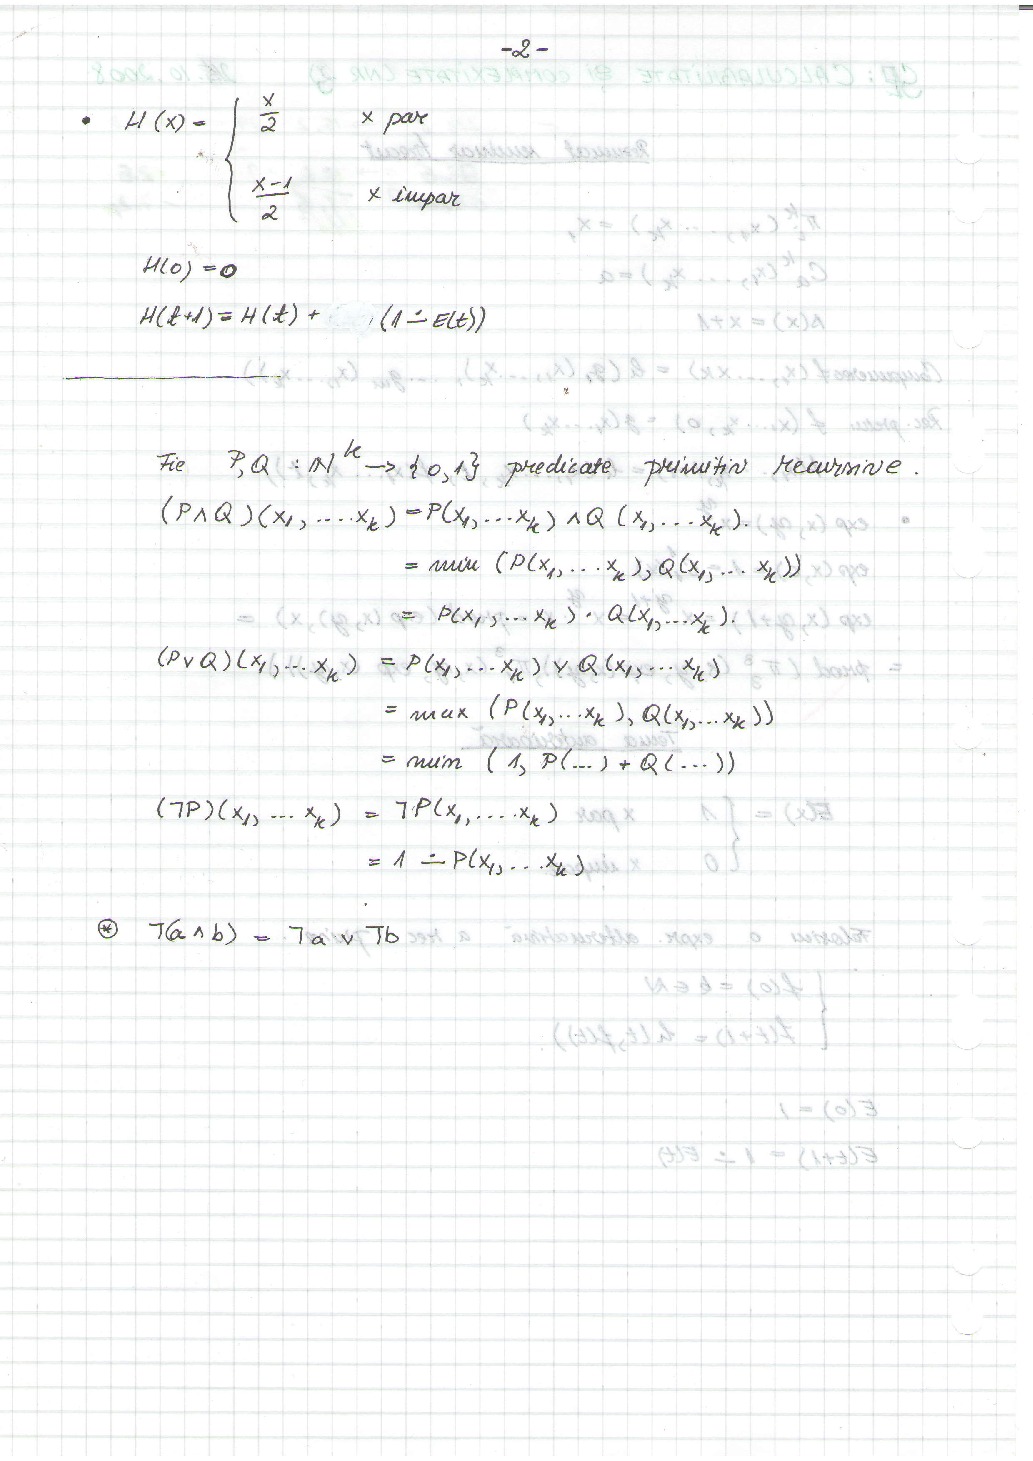 -2-
• H(x) = { x/2 x par
(x-1)/2 x impar
H(0) = 0
H(t+1) = H(t) + (1 ∸ E(t))
Fie P,Q : ℕ^k → {0,1} predicate primitiv recursive.
(P∧Q)(x₁, ....x_k) = P(x₁,...x_k) ∧ Q(x₁,...x_k).
= min (P(x₁,...x_k), Q(x₁,... x_k))
= P(x₁,...x_k) · Q(x₁,...x_k).
(P∨Q)(x₁,...x_k) = P(x₁,...x_k) ∨ Q(x₁,...x_k)
= max (P(x₁,...x_k), Q(x₁,...x_k))
= min (1, P(...) + Q(...))
(⌐P)(x₁,... x_k) = ⌐P(x₁,....x_k)
= 1 ∸ P(x₁,...x_k)
⊛ ⌐(a ∧ b) = ⌐a ∨ ⌐b